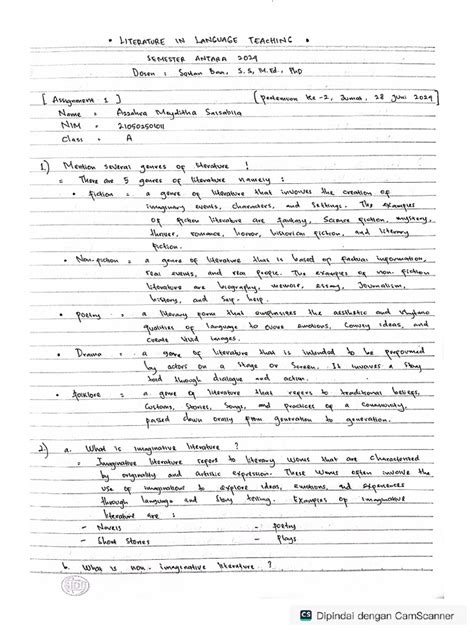 • LITERATURE IN LANGUAGE TEACHING •
SEMESTER ANTARA 2024
Dosen : Soutan Ban, S.S, M.Ed., PhD
[ Assignment 1 ] (Pertemuan ke-2, Jumat, 28 Juni 2024)
Name : Azzahra Meyditha Salsabila
NIM :
Class : A
1.) Mention several genres of literature !
= There are 5 genres of literature namely :
• fiction = a genre of literature that involves the creation of
imaginary events, characters, and settings. The examples
of fiction literature are fantasy, Science fiction, mystery,
thriller, romance, horror, historical fiction, and literary
fiction.
• Non-fiction = a genre of literature that is based on factual information,
real events, and real people. The examples of non-fiction
literature are biography, memoir, essay, Journalism,
history, and self-help.
• Poetry = a literary form that emphasizes the aesthetic and rhythmic
qualities of language to evoke emotions, Convey ideas, and
create vivid images.
• Drama = a genre of literature that is intended to be performed
by actors on a stage or screen. It involves a story
told through dialogue and action.
• folklore = a genre of literature that refers to traditional beliefs,
Customs, Stories, Songs, and practices of a community,
passed down orally from generation to generation.
2.) a. What is imaginative literature ?
= Imaginative literature refers to literary works that are characterized
by originality and artistic expression. These works often involve the
use of imagination to explore ideas, emotions, and experiences
through language and story telling. Examples of imaginative
literature are :
- Novels - poetry
- Short Stories - Plays
b. What is non-imaginative literature ?
CS Dipindai dengan CamScanner